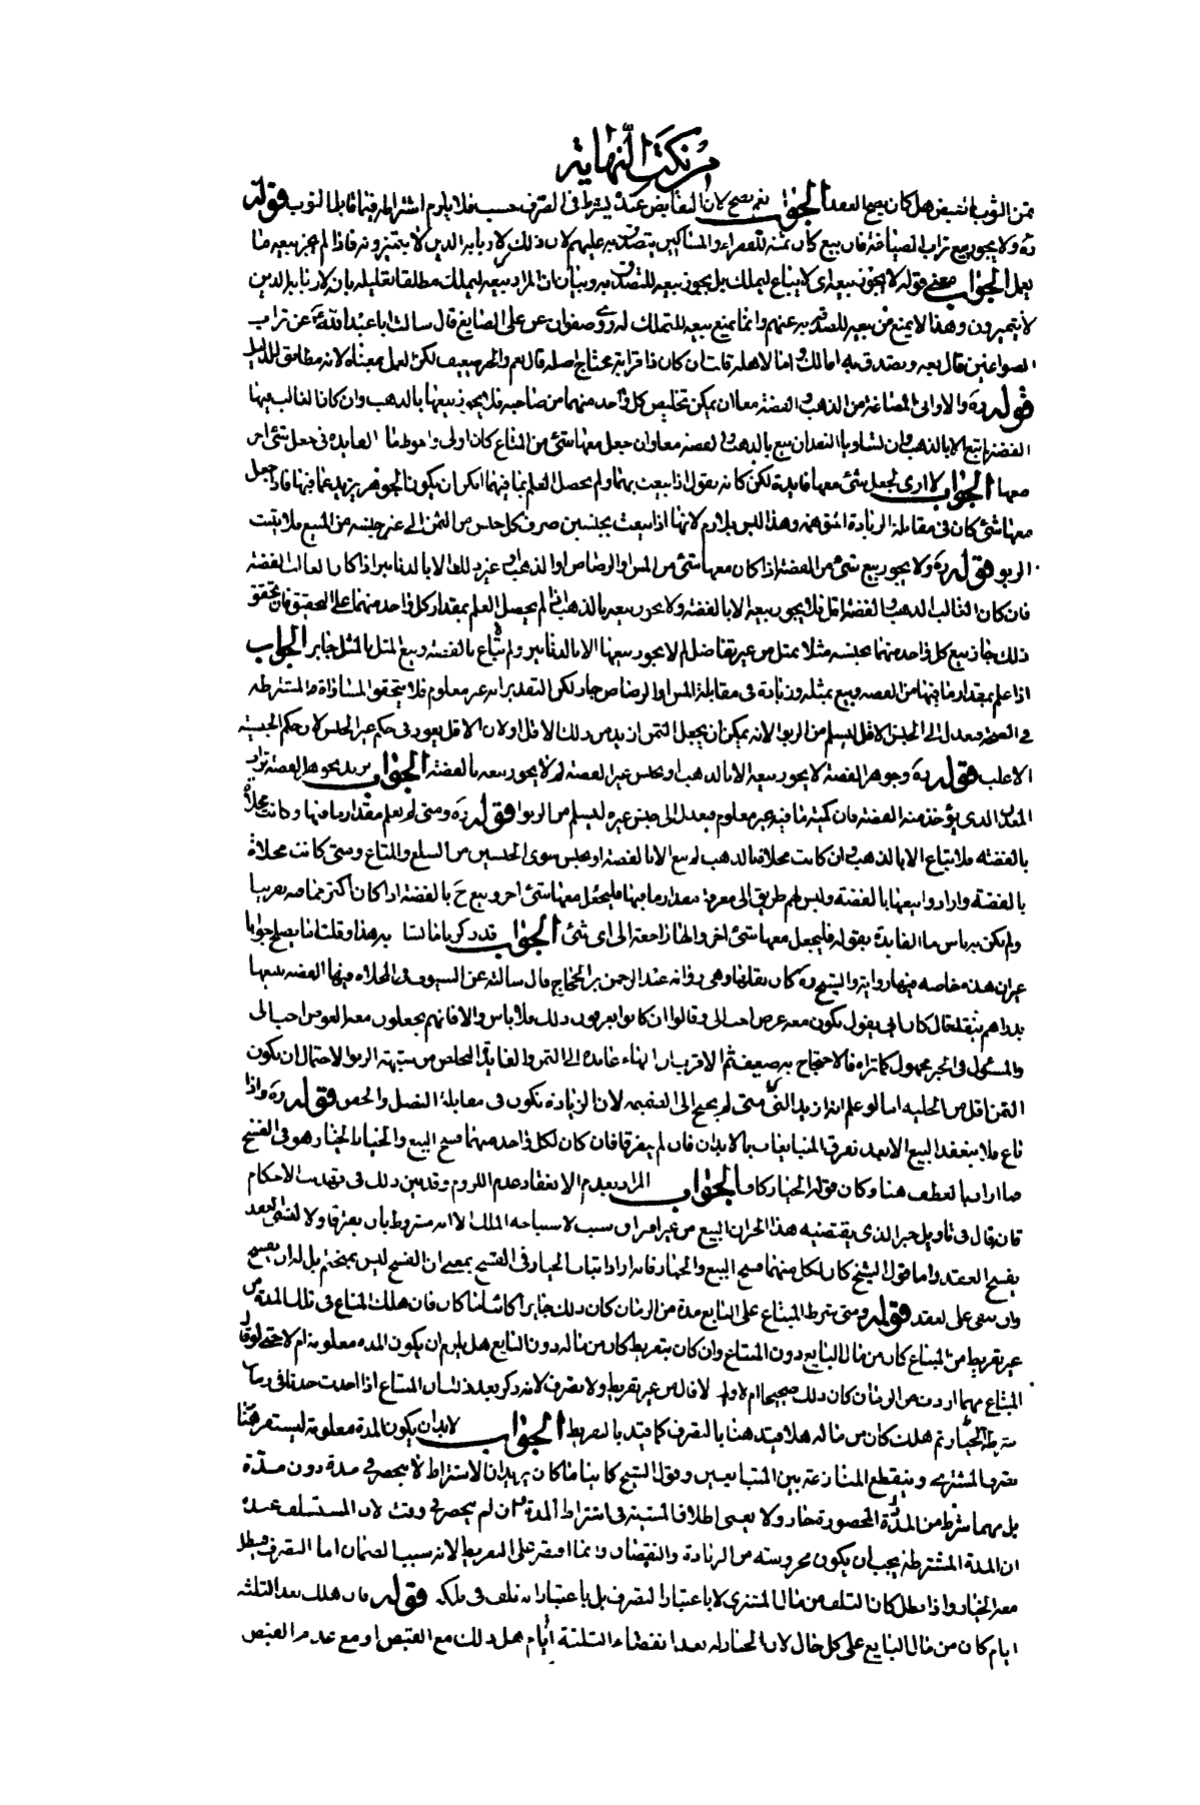 من نكت النهاية
ثمن الثوب التقبض هل كان يصح العقد الجواب نعم يصح لان التقابض عنده يشترط في الصرف حسب فلا يلزم اشتراطه فيما قابل الثوب قوله
ره ولا يجوز بيع تراب الصياغة فان بيع كان ثمنه للفقراء والمساكين يتصدق به عليهم لان ذلك لاربابه الذين لا يتميزونه فاذا لم يجز بيعه ما
يعل الجواب معنى قوله لا يجوز بيعه اي لا يباع ليملك بل يجوز بيعه للتصدق به وبيان ان المراد بيعه ليملك مطلقا تعليله بان لاربابه الذين
لا يتميزون وهذا لا يمنع من بيعه للصدقة به عنهم وانما يمنع بيعه للتملك له روى صفوان عن علي الصايغ قال سالت ابا عبد الله ع عن تراب
الصواغين قال بعه وتصدق به اما لك واما لاهله قلت ان كان ذا قرابة محتاج اصله قال نعم والخبر ضعيف لكن العمل بمعناه لانه مطابق للدليل
قوله ره والاواني المصاغة من الذهب والفضة معا ان يمكن تخليص كل واحد منهما من صاحبه فلا يجوز بيعها بالذهب وان كان الغالب فيها
الفضة لم تبع الا بالذهب وان تساويا النقدان بيع بالذهب والفضة معا وان جعل معها شئ من المتاع كان اولى واحوط ما الفايدة في جعل شئ اخر
معها الجواب لا ارى لجعل شئ معها فايدة لكن كانه يقول اذا بيعت بهما ولم يحصل العلم بما فيهما امكن ان يكون الجوهر يزيد عما فيها فاذا جعل
معها شئ كان في مقابلة الزيادة وهذا ليس بلازم لانها اذا بيعت بجنسين صرف كل جنس من الثمن الى غير جنسه من المبيع فلا يثبت
الربو قوله ره ولا يجوز بيع شئ من الفضة اذا كان معها شئ من المس او الرصاص او الذهب او غير ذلك الا بالدنانير اذا كان الغالب الفضة
فان كان الغالب الذهب والفضة اقل فلا يجوز بيعه الا بالفضة ولا يجوز بيعه بالذهب اذا لم يحصل العلم بمقدار كل واحد منهما على التحقيق فان تحقق
ذلك جاز بيع كل واحد منهما بجنسه مثلا بمثل من غير تفاضل لم لا يجوز بيعها الا بالدنانير ولم لا تباع بالفضة وبيع المثل بالمثل جايز الجواب
اذا علم بمقدار ما فيها من الفضة وبيع بمثله وزيادة في مقابلة المس او الرصاص جاز لكن التقدير انه غير معلوم فلا يتحقق المساواة المشترطة
في الصحة فعدل الى الجنس الاقل ليسلم من الربوا لانه يمكن ان يجعل الثمن ازيد من ذلك الاقل او لان الاقل يعود في حكم غير الجنس لان حكم الجنسية
الاغلب قوله ره وجوهر الفضة لا يجوز بيعه الا بالذهب او بجنس غير الفضة لم لا يجوز بيعه بالفضة الجواب يريد بجوهر الفضة تراب
المعدن الذي يؤخذ منه الفضة فان كمية ما فيه غير معلوم فعدل الى جنس غيره ليسلم من الربوا قوله ره ومتى لم يعلم مقدار ما فيها وكانت محلاة
بالفضة فلا تباع الا بالذهب وان كانت محلاة بالذهب لم تبع الا بالفضة او بجنس سوى الجنسين من السلع والمتاع ومتى كانت محلاة
بالفضة وارادوا بيعها بالفضة وليس لهم طريق الى معرفة مقدار ما فيها فليجعل معها شئ اخر وبيع ح بالفضة اذا كان اكثر مما فيه تقريبا
ولم يكن به باس ما الفايدة بقوله فليجعل معها شئ اخر والهاء راجعة الى اي شئ الجواب قد ذكرنا ما شابه هذا وقلنا ما يصلح جوابا
غير ان هذه خاصة فيها رواية والشيخ ره كان نقلها وهي رواية عبد الرحمن بن الحجاج قال سالته عن السيوف المحلاة فيها الفضة نبيعها
بدراهم بنقد قال كان ابي يقول يكون معه عرض احب الي وقالوا ان كانوا يعرفون ذلك فلا باس والا فانهم يجعلون معه العوض احب الي
والمسئول في الخبر مجهول كما تراه فالاحتجاج به ضعيف ثم الاقرب ان الهاء عايدة الى الثمن والفايدة التخلص من شبهة الربوا لاحتمال ان يكون
الثمن اقل من الحلية اما لو علم انه ازيد متى لم يحتج الى الضميمة لان الزيادة تكون في مقابلة النصل والجفن قوله ره واذا
باع فلا ينعقد البيع الا بعد تفرق المتبايعان بالابدان فان لم يفترقا فان كان لكل واحد منهما فسخ البيع والخيار الخيار هو في الفسخ
فما اراد بالعطف هنا وكان قوله الخيار كاف الجواب المراد بعدم الانعقاد عدم اللزوم وقد بين ذلك في تهذيب الاحكام
فان قال في تاويل خبر الذي يقتضيه هذا الخبر ان البيع من غير افتراق سبب لاستباحة الملك الا انه مشروط بان يفترقا ولا يفسخ العقد
يفسخ العقد واما قول الشيخ كان لكل منهما فسخ البيع والخيار فانه اراد اثبات الخيار في الفسخ بمعنى ان الفسخ ليس بمنحتم بل له ان يفسخ
وان يبقى على العقد قوله ومتى شرط المبتاع على البايع مدة من الزمان كان ذلك جايزا كائنا ما كان فان هلك المتاع في تلك المدة من
غير تفريط من المبتاع كان من مال البايع دون المبتاع وان كان بتفريط كان من ماله دون البايع هل يلزم ان يكون المدة معلومة ام لا حتى لو قال
المبتاع مهما اردت من الزمان كان ذلك صحيحا ام لا ولم لا قال من غير تفريط ولا تصرف لانه ذكر بعد ذلك ان المبتاع اذا احدث حدثا في زمان
شرط الخيار ثم هلك كان من ماله هلا قيد هنا بالتصرف كما قيد بالتفريط الجواب لا بد ان يكون المدة معلومة ليستقر هنا
تصرف المشتري وينقطع المنازعة بين المتبايعين وقول الشيخ كائنا ما كان يريد ان الاشتراط لا ينحصر في مدة دون مدة
بل مهما شرط من المدة المحصورة جاز ولا يعني اطلاق المشية في اشتراط المدة ان لم ينحصر في وقت لان المستسلف عنده
ان المدة المشترطة يجب ان يكون محروسة من الزيادة والنقصان وانما اقتصر على التفريط لانه سبب الضمان اما التصرف فيبطل
معه الخيار واذا بطل كان التلف من مال المشتري لا باعتبار التصرف بل باعتبار انه تلف في ملكه قوله فان هلك بعد الثلثة
ايام كان من مال البايع على كل حال لان الخيار له بعد انقضاء الثلثة ايام هل ذلك مع القبض او مع عدم القبض